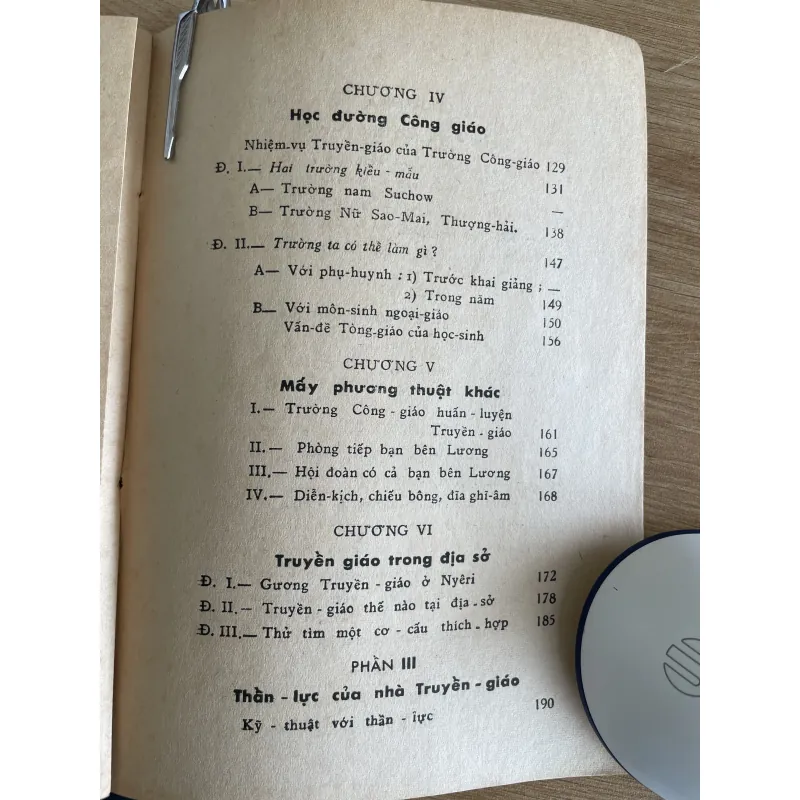 CHƯƠNG IV
Học đường Công giáo
Nhiệm-vụ Truyền-giáo của Trường Công-giáo 129
Đ. I.— Hai trường kiểu - mẫu 131
A— Trường nam Suchow —
B— Trường Nữ Sao-Mai, Thượng-hải. 138
Đ. II.— Trường ta có thể làm gì ? 147
A— Với phụ-huynh : 1) Trước khai giảng ; —
2) Trong năm 149
B— Với môn-sinh ngoại-giáo 150
Vấn-đề Tòng-giáo của học-sinh 156
CHƯƠNG V
Mấy phương thuật khác
I.— Trường Công - giáo huấn - luyện
Truyền - giáo 161
II.— Phòng tiếp bạn bên Lương 165
III.— Hội đoàn có cả bạn bên Lương 167
IV.— Diễn-kịch, chiếu bóng, đĩa ghi-âm 168
CHƯƠNG VI
Truyền giáo trong địa sở
Đ. I.— Gương Truyền - giáo ở Nyêri 172
Đ. II.— Truyền - giáo thế nào tại địa - sở 178
Đ. III.— Thử tìm một cơ - cấu thích - hợp 185
PHẦN III
Thần - lực của nhà Truyền - giáo
Kỹ - thuật với thần - lực 190